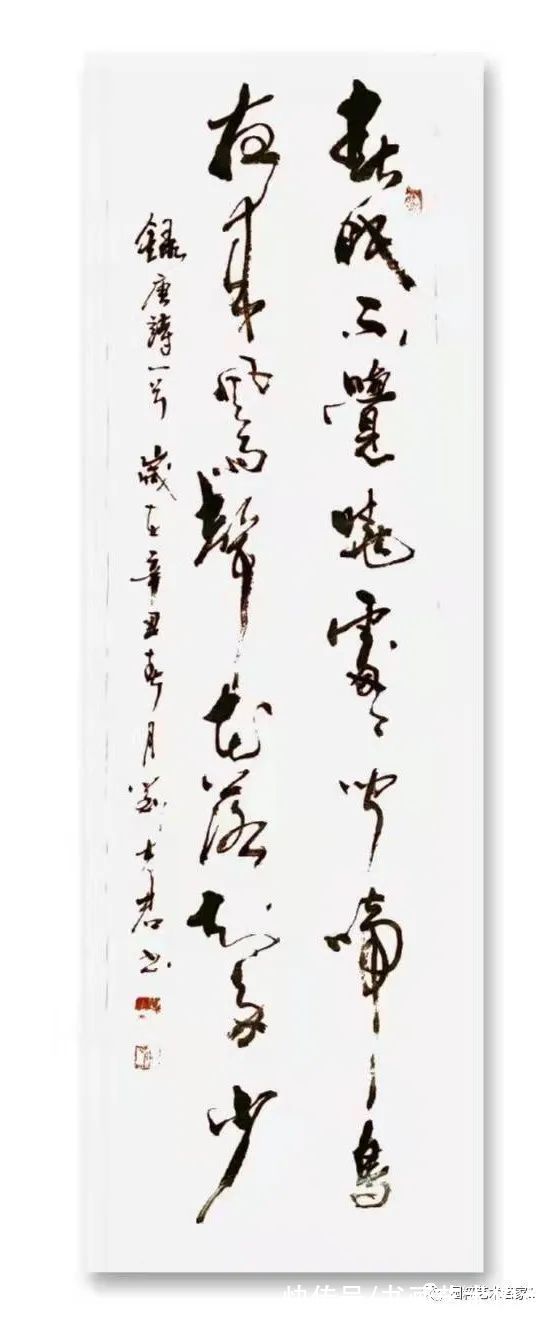 春眠不覺曉處々聞啼鳥
夜来風雨聲花落知多少
錄唐詩一首 歲在辛丑春月 君书
快传号/书画
国粹艺术名家